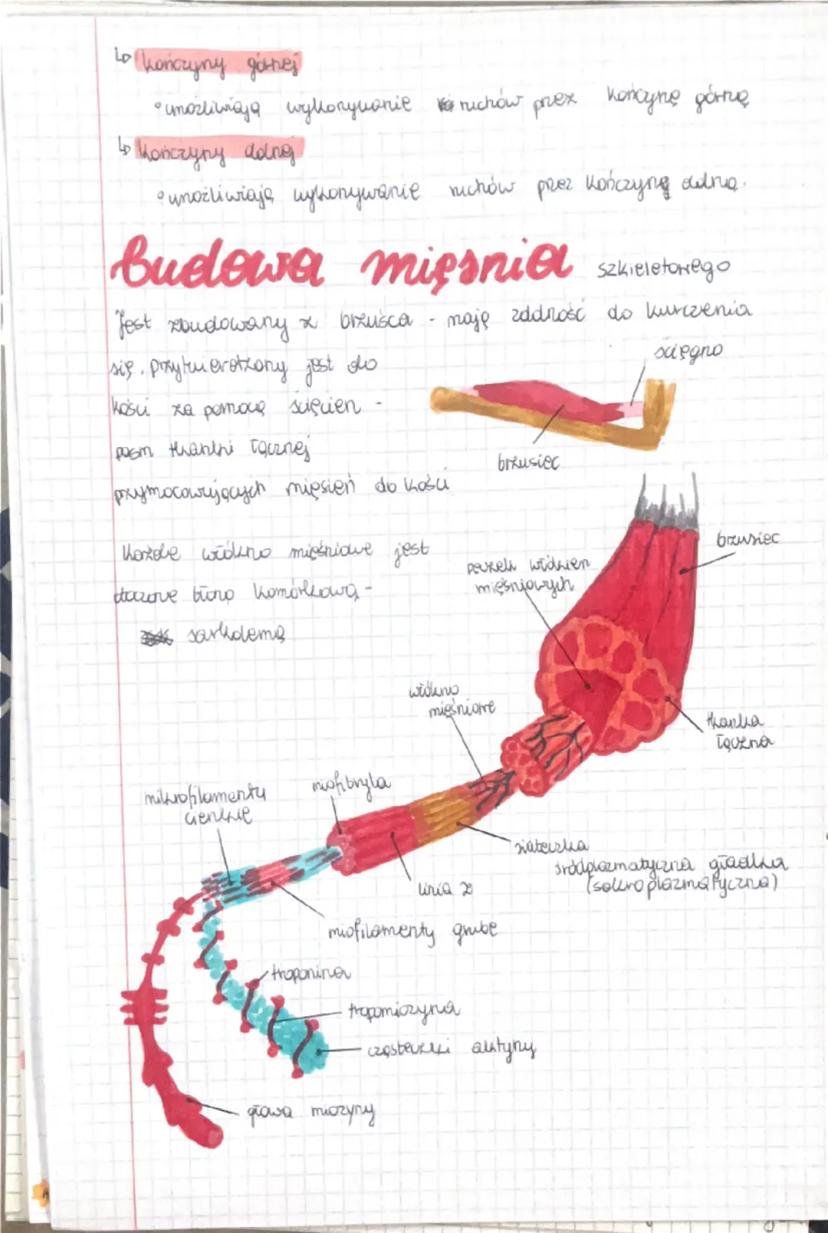 ↳ kończyny górnej
° umożliwiają wykonywanie ruchów przez kończynę górną
↳ kończyny dolnej
° umożliwiają wykonywanie ruchów przez kończynę dolną.
budowa mięśnia szkieletowego
Jest zbudowany z brzuśca - mają zdolność do kurczenia
się. przytwierdzony jest do
kości za pomocą ścięgien -
pasm tkanki łącznej
przymocowujących mięsień do kości
ścięgno
brzusiec
Każde włókno mięśniowe jest
otoczone błoną komórkową -
sarkolemą
brzusiec
pęczek włókien
mięśniowych
włókno
mięśniowe
tkanka
łączna
mikrofilamenty
cienkie
miofibryla
siateczka
śródplazmatyczna gładka
(sakroplazmatyczna)
linia z
miofilamenty grube
troponina
tropomiozyna
cząsteczki aktyny
głowa miozyny